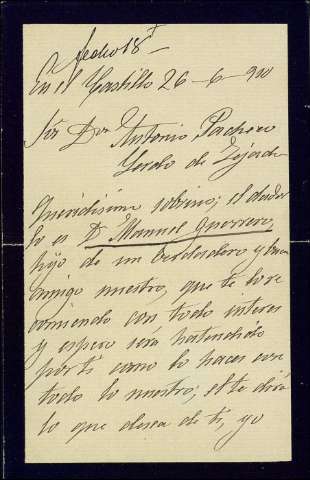 En el Castillo 26-6-90
Sr Don Antonio Pacheco
Lerdo de Tejada
Queridisimo sobrino; el dador
lo es D. Manuel Guerrero,
hijo de un berdadero y buen
amigo nuestro, que te lo re
comiendo con todo interes
y espero será hatendido
por ti como lo haces con
todo lo nuestro; el te dirá
lo que desea de ti, yo